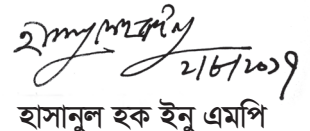 ২/৮/২০১৭
হাসানুল হক ইনু এমপি